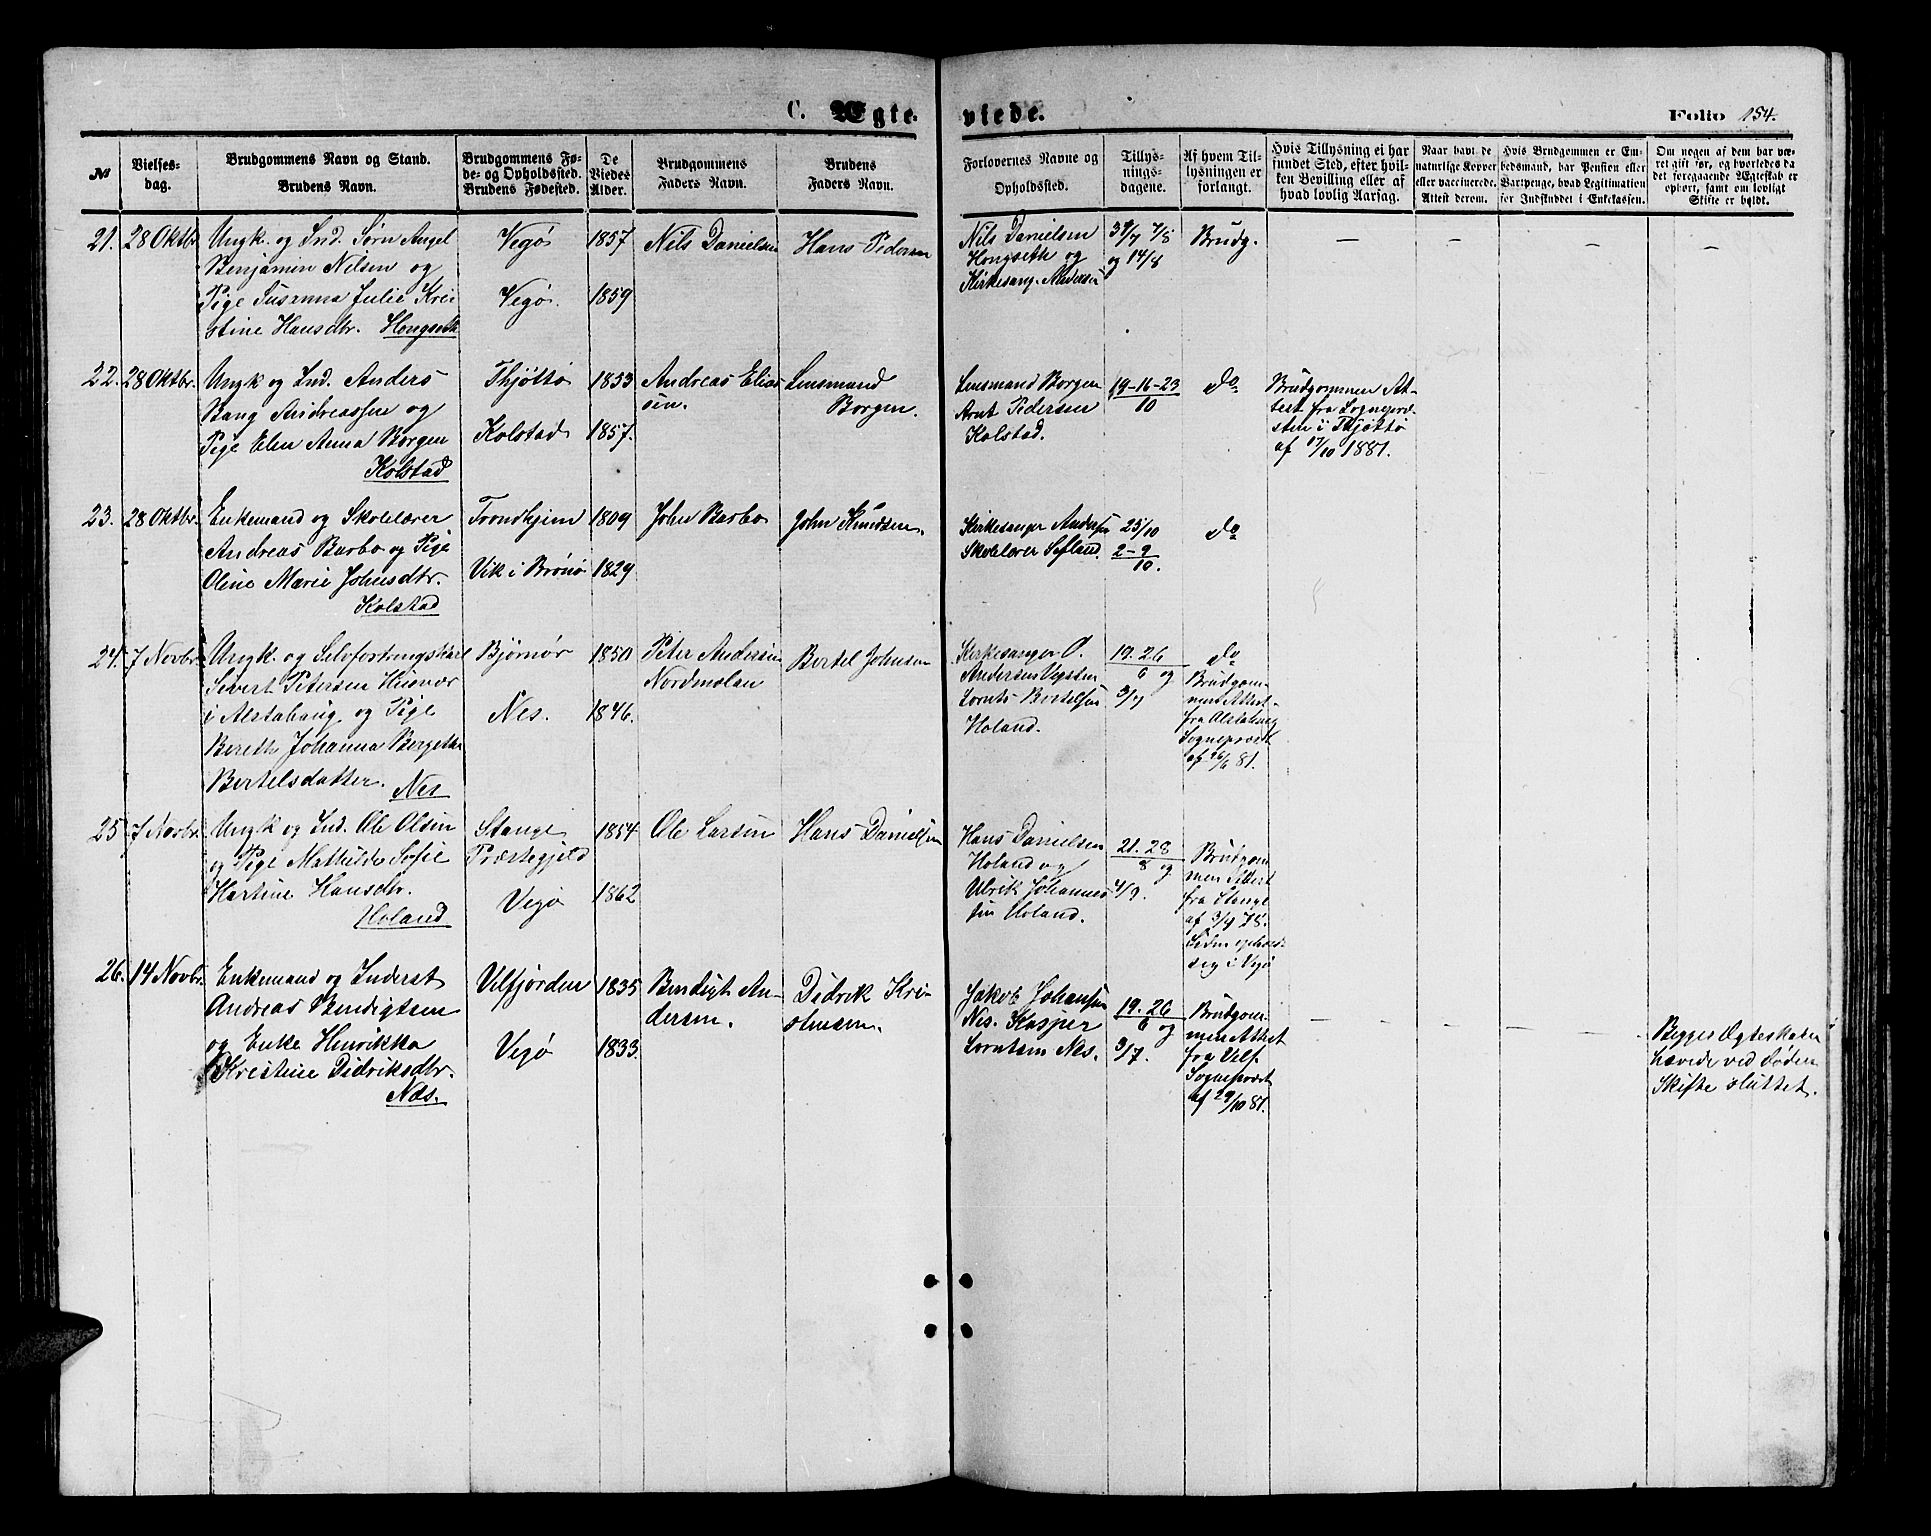 C. Ægte-
viede.
Folio 154.
№
Vielses-
dag.
Brudgommens Navn og Stand.
Brudens Navn.
Brudgommens Fø-
de- og Opholdssted.
Brudens Fødested.
De
Viedes
Alder.
Brudgommens
Faders Navn.
Brudens
Faders Navn.
Forlovernes Navne og
Opholdssted.
Tillys-
nings-
dagene.
Af hvem Til-
lysningen er
forlangt.
Hvis Tillysning ei har
fundet Sted, efter hvil-
ken Bevilling eller af
hvad lovlig Aarsag.
Naar havt de
naturlige Kopper
eller vaccinerede.
Attest derom.
Hvis Brudgommen er Em-
bedsmand, har Pension eller
Vartpenge, hvad Legitimation
for Indskuddet i Enkekassen.
Om nogen af dem har væ-
ret gift før, og hvorledes da
det foregaaende Ægteskab er
ophørt, samt om lovligt
Skifte er holdt.
21. 28 Oktbr.
Ungk. og Ind. Sørn Angel
Benjamin Nilsen og
Pige Susanna Julie Kri-
stine Hansdtr. Hongseth
Vegø
Vegø.
1857
1859
Nils Danielsen
Hans Pedersen
Nils Danielsen
Hongseth og
Kirkesang. Andersen
31/7 7/8
og 14/8
Brudg.
22. 28 Oktbr.
Ungk og Ind. Anders
Bang Andreassen og
Pige Elen Anna Borgen
Kolstad
Thjøttø
Kolstad
1853
1857.
Andreas Elias
sen.
Lensmand
Borgen.
Lensmand Borgen
Arnt Pedersen
Kolstad.
19-16-23
10
do
Brudgommen At-
test fra Sognepræ-
sten i Thjøttø
af 17/10 1881.
23. 28 Oktbr.
Enkemand og Skolelærer
Andreas Barbo og Pige
Oline Marie Johnsdtr.
Kolstad
Trondhjem
Vik i Brønø
1809
1829
John Barbo
John Knudsen.
Kirkesanger Andersen
Skolelærer Sefland.
25/10
2-9
10.
do
24. 7 Novbr.
Ungk. og Selvfostringskarl
Sivert Petersen Husvær
i Alstahaug og Pige
Bereth Johanna Bergette
Bertelsdatter. Nes
Bjørnør
Nes.
1850
1846.
Peter Andersen
Nordmolan
Bertel Johnsen
Kirkesanger O.
Andersen Vegsten
Lornts Bertelsen
Holand.
19. 26
6 og
3/7
do
Brudgom-
mens Attest
fra Alstahaug
Sognepræst
af 26/6 81.
25 7 Novbr.
Ungk og Ind. Ole Olsen
og Pige Mathilde Sofie
Hartine Hansdtr.
Holand
Stange
Præstegjeld
Vegø
1854
1862
Ole Larsen
Hans Danielsen
Hans Danielsen
Holand og
Ulrik Johannes
sen Holand.
21. 28
8 og
4/9.
Brudgom-
men Attest
fra Stange
af 3/9 78.
Siden opholdt
sig i Vegø
26. 14 Novbr.
Enkemand og Inderst
Andreas Bendigtsen
og Enke Henrikka
Kristine Didriksdtr.
Næs.
Velfjorden
Vegø
1835
1833.
Bendigt An-
dersen.
Didrik Kri-
stensen.
Jakob Johansen
Nes. Kasper
Lorntsen Nes.
19. 26
6 og
3/7.
Brudgom-
men Attest
fra Velf.
Sognepræst
af 29/10 81.
Begges Ægteskaber
hævede ved Døden
Skifte sluttet.